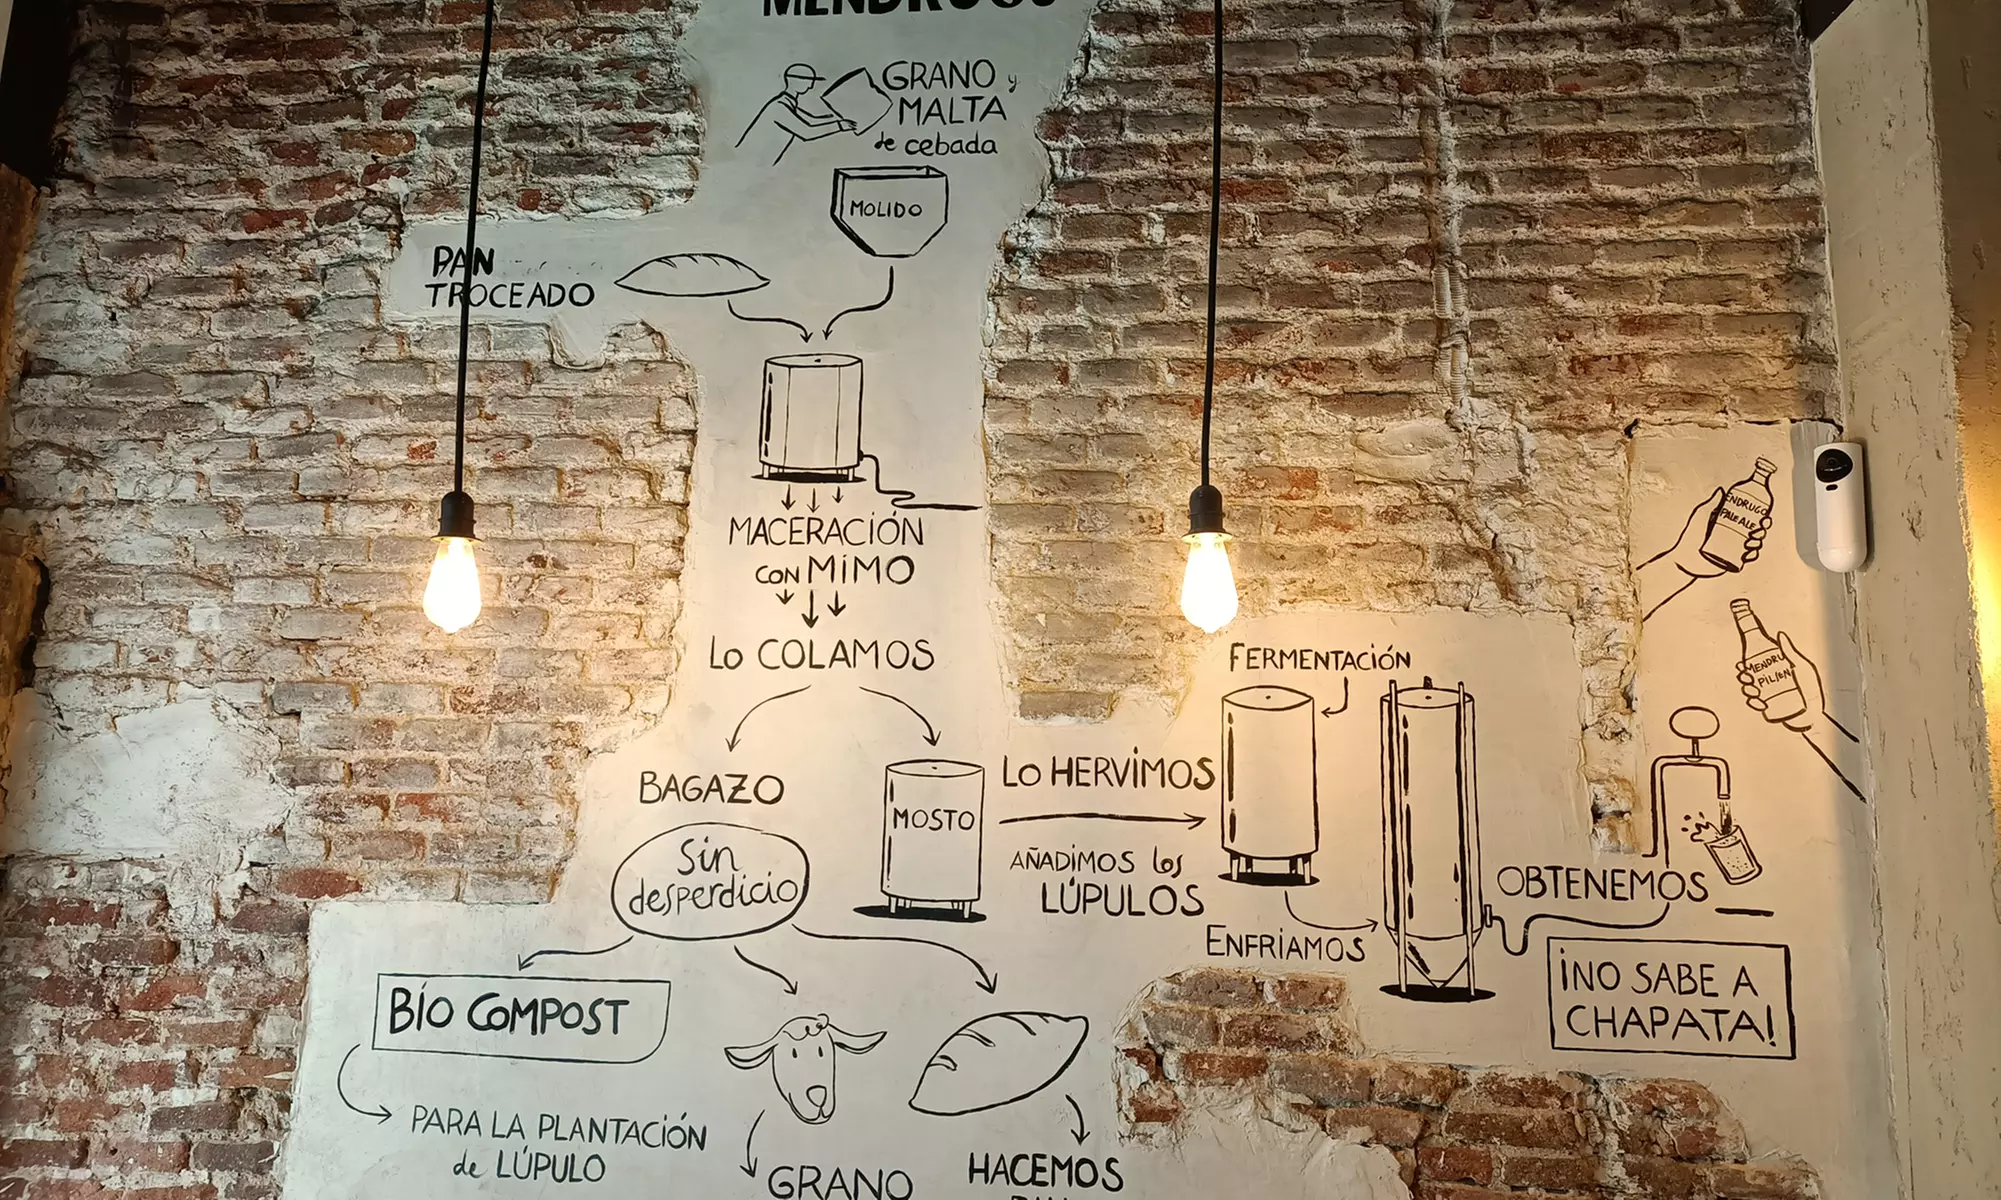 MENDRUGO
GRANO y
MALTA
de cebada
MOLIDO
PAN
TROCEADO
MACERACIÓN
CON MIMO
LO COLAMOS
BAGAZO
Sin
desperdicio
MOSTO
LO HERVIMOS
AÑADIMOS los
LÚPULOS
FERMENTACIÓN
ENFRIAMOS
OBTENEMOS
¡NO SABE A
CHAPATA!
ENDRUGO
PALE ALE
MENDRU
PILSEN
BÍO COMPOST
PARA LA PLANTACIÓN
de LÚPULO
GRANO
HACEMOS